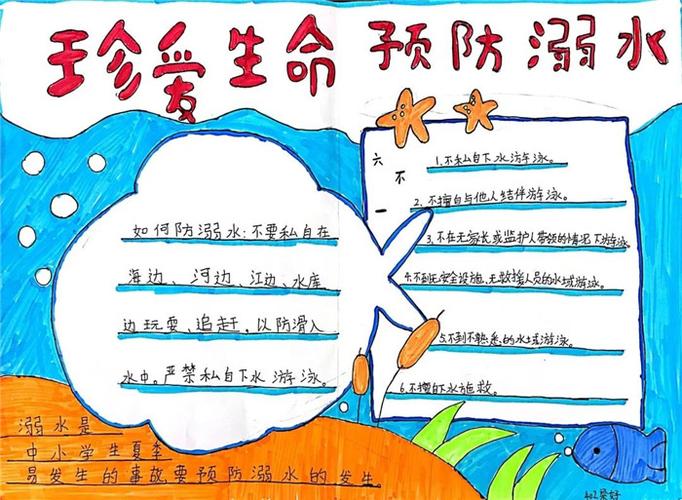 珍爱生命 预防溺水
如何防溺水:不要私自在
海边、河边、江边、水库
边玩耍、追赶,以防滑入
水中。严禁私自下水游泳。
六不一
1.不私自下水游泳。
2.不擅自与他人结伴游泳。
3.不在无家长或监护人带领的情况下游泳。
4.不到无安全设施、无救援人员的水域游泳。
5.不到不熟悉的水域游泳。
6.不擅自下水施救。
溺水是
中小学生夏季
易发生的事故,要预防溺水的发生。